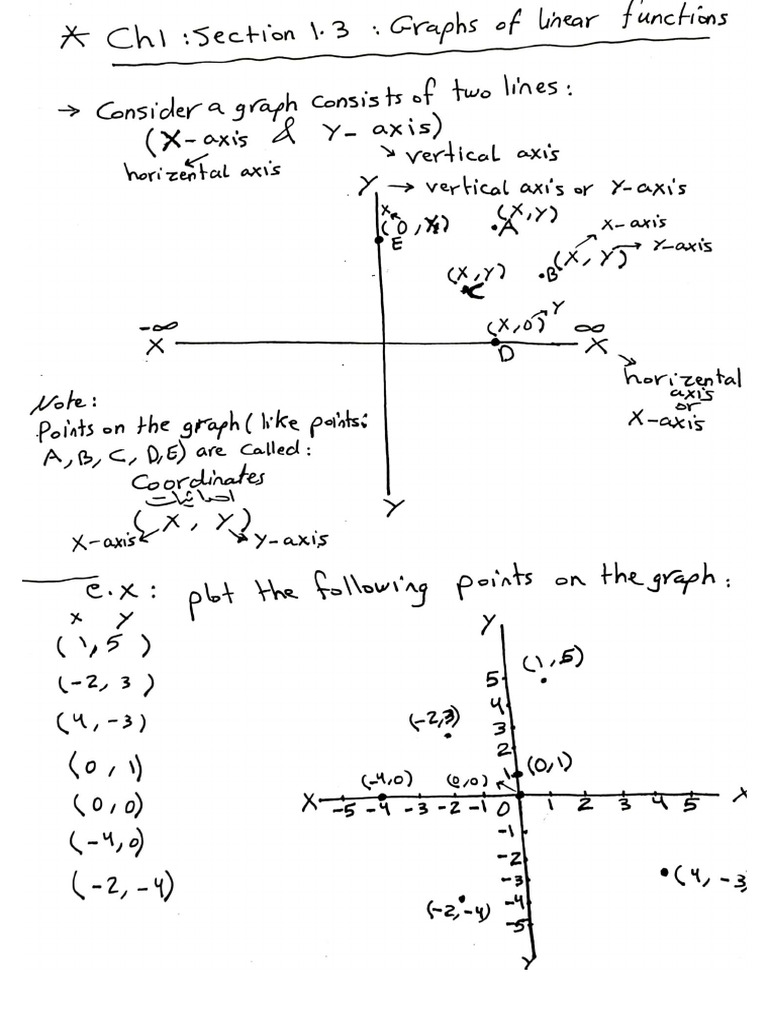 * Ch1 : Section 1.3 : Graphs of linear functions
→ Consider a graph consists of two lines :
(X-axis & Y-axis)
horizental axis
vertical axis
Y → vertical axis or Y-axis
x
(0, Y)
E
(X,Y)
A
X-axis
(X, Y) → Y-axis
B
(X,Y)
C
-∞
X
(X,0) Y
D
∞
X
horizental
axis
or
X-axis
Y
Note:
Points on the graph (like points:
A, B, C, D, E) are called:
Coordinates
احداثيات
(X, Y)
X-axis
Y-axis
e.x : plot the following points on the graph :
x y
(1, 5)
(-2, 3)
(4, -3)
(0, 1)
(0, 0)
(-4, 0)
(-2, -4)
Y
(1, 5)
5
4
(-2,3)
3
2
1
(0,1)
(-4,0)
(0,0)
X -5 -4 -3 -2 -1 0 1 2 3 4 5 X
-1
-2
-3
(4, -3
-4
(-2,-4)
-5
Y